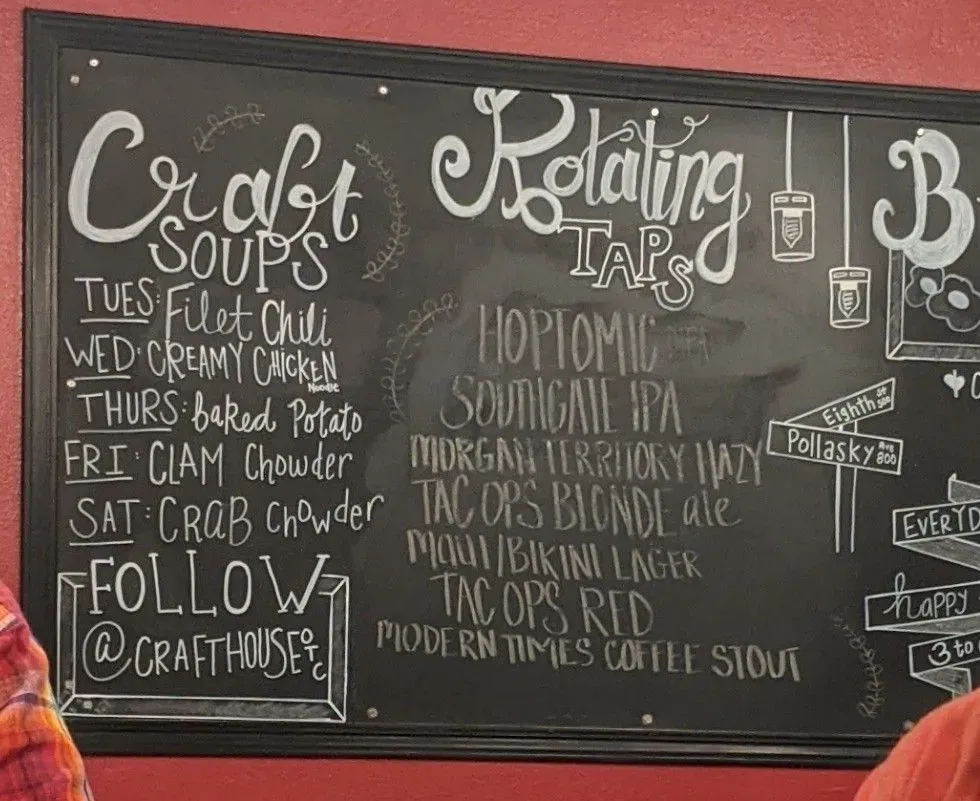 Craft
SOUPS
TUES: Filet Chili
WED: CREAMY CHICKEN
NOODLE
THURS: Baked Potato
FRI: CLAM Chowder
SAT: CRAB Chowder
FOLLOW
@CRAFTHOUSEOTC
Rotating
TAPS
HOPTOMIC
SOUTHGATE IPA
MORGAN TERRITORY HAZY
TAC OPS BLONDE ale
MAUI/BIKINI LAGER
TAC OPS RED
MODERN TIMES COFFEE STOUT
Eighth St 500
Pollasky Ave 800
B
EVERYD
happy
3 to